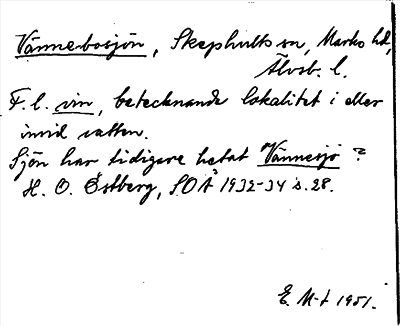 Vännebosjön, Skephults sn, Marks hd,
Älvsb. l.
F. l. vin, betecknande lokalitet i eller
invid vatten.
Sjön har tidigare hetat Vännesjö?
H. O. Östberg, SOÅ 1932-34 s. 28.
E. M-t 1951.